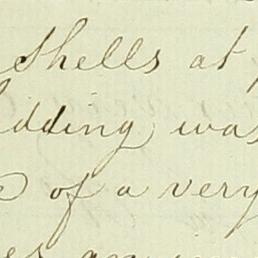 Shells at
dding was
of a very